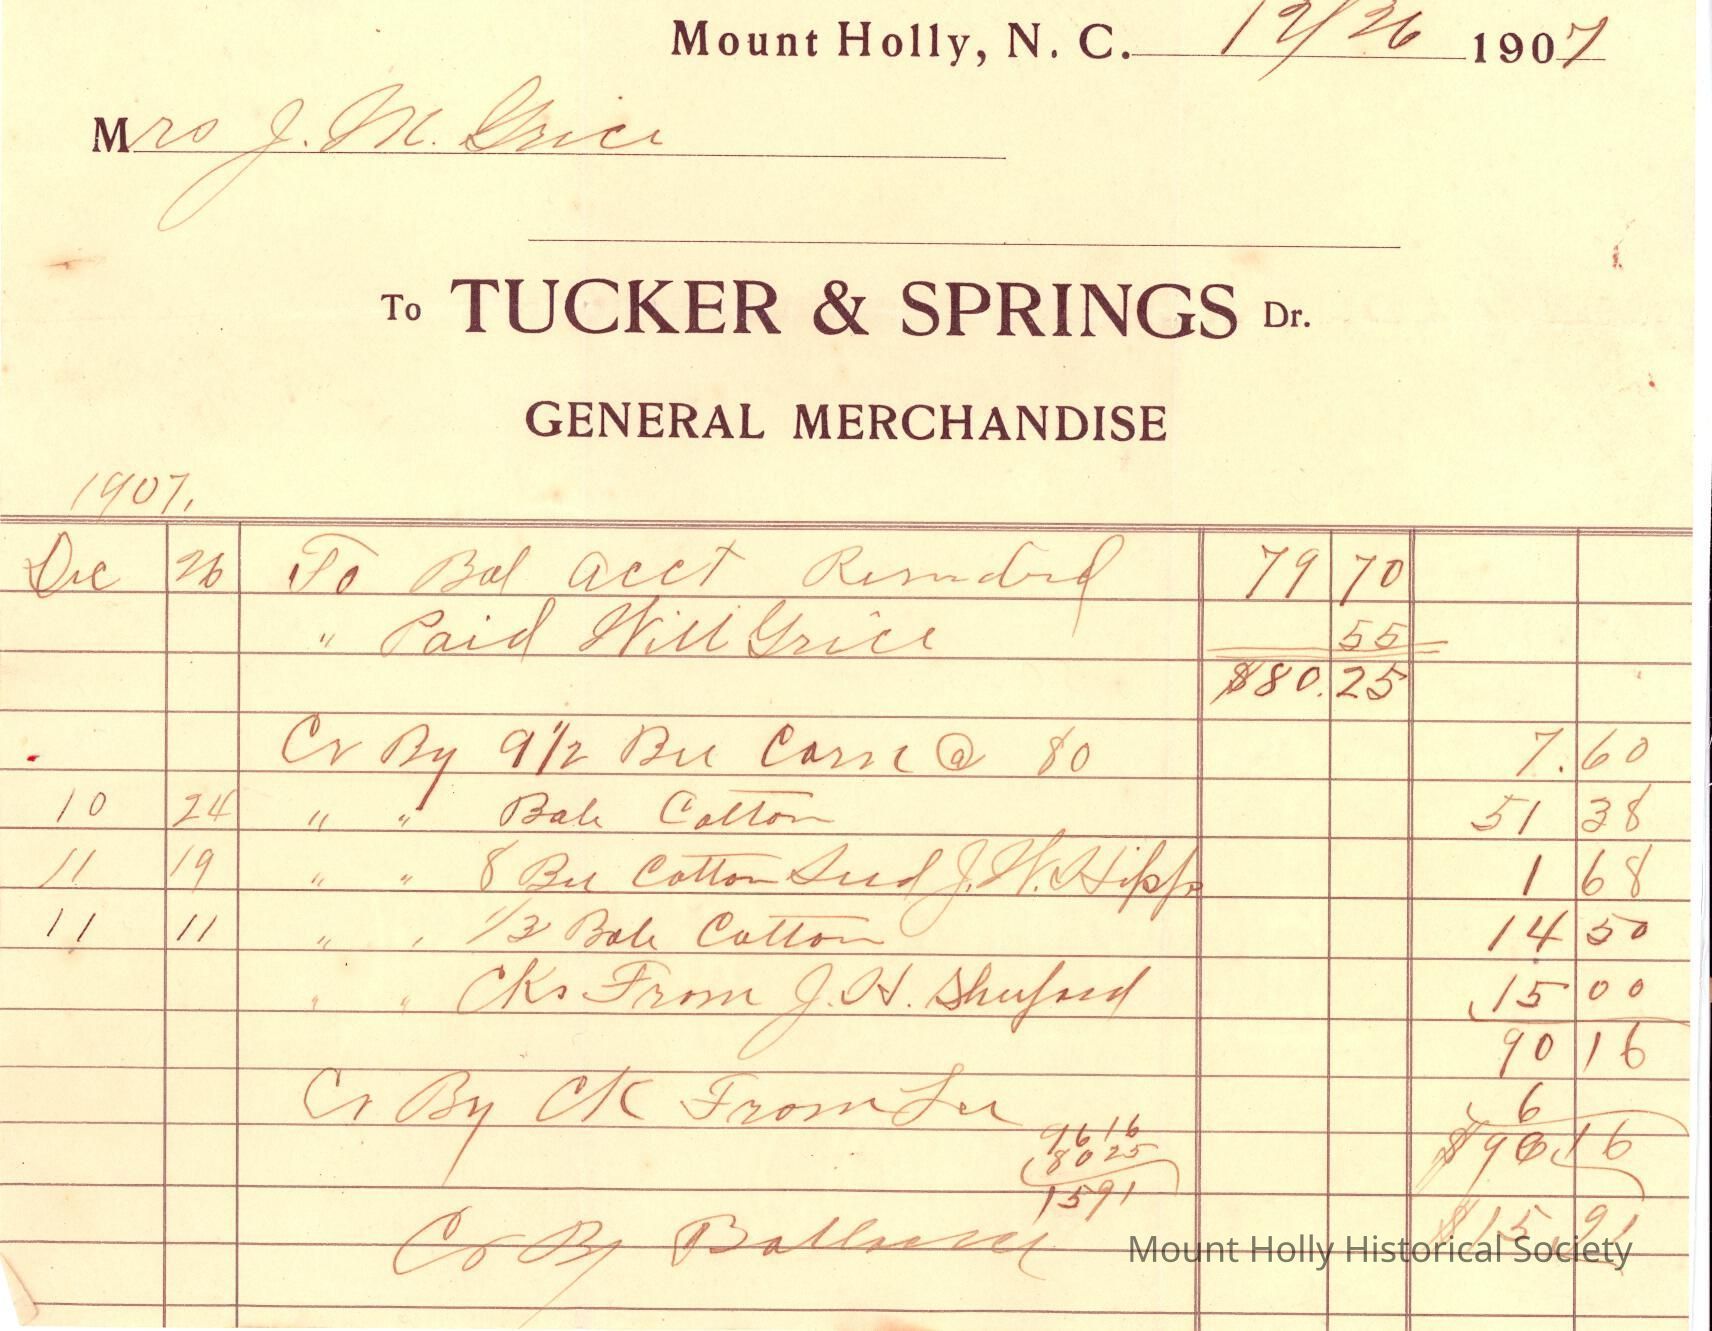 Mount Holly, N. C. 12/26 1907
Mrs J. M. Grice
To TUCKER & SPRINGS Dr.
GENERAL MERCHANDISE
1907.
Dec 26 To Bal acct Rendered 79 70
" Paid Will Grice 55
$80.25
Cr By 9 1/2 Bu Corn @ 80 7.60
10 24 " " Bale Cotton 51 38
11 19 " " 8 Bu Cotton Seed J. W. Hipp 1 68
11 11 " " 1/3 Bale Cotton 14 50
" " Cks From J. H. Shuford 15 00
90 16
Cr By CK From Lee 6
96 16 $96.16
80 25
15 91
Cr By Ballance $15.91
Mount Holly Historical Society